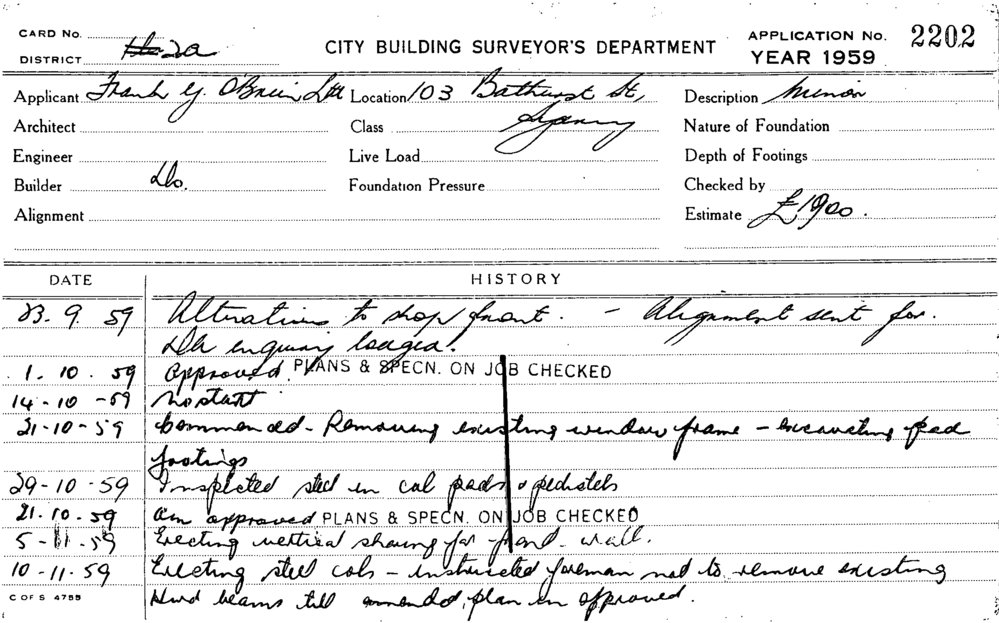 CARD No.
DISTRICT 2a
CITY BUILDING SURVEYOR'S DEPARTMENT
APPLICATION No. 2202
YEAR 1959
Applicant Frank G O'Brien Ltd Location 103 Bathurst St, Description Minor
Architect Class Sydney Nature of Foundation
Engineer Live Load Depth of Footings
Builder Do. Foundation Pressure Checked by
Alignment Estimate £1900.
DATE HISTORY
23. 9. 59 Alterations to shop front. - Alignment sent for.
enquiry lodged.
1. 10. 59 Approved. PLANS & SPECN. ON JOB CHECKED
14-10-59 No start
21-10-59 Commenced - Removing existing window frame - excavating pad
footings
29-10-59 Inspected steel in col pads & pedistels
21.10.59 am approved PLANS & SPECN. ON JOB CHECKED
5-11-59 Erecting vertical shoring for wall.
10-11-59 Erecting steel cols - instructed foreman not to remove existing
Hwd beams till amended plan approved.
C OF S 4755